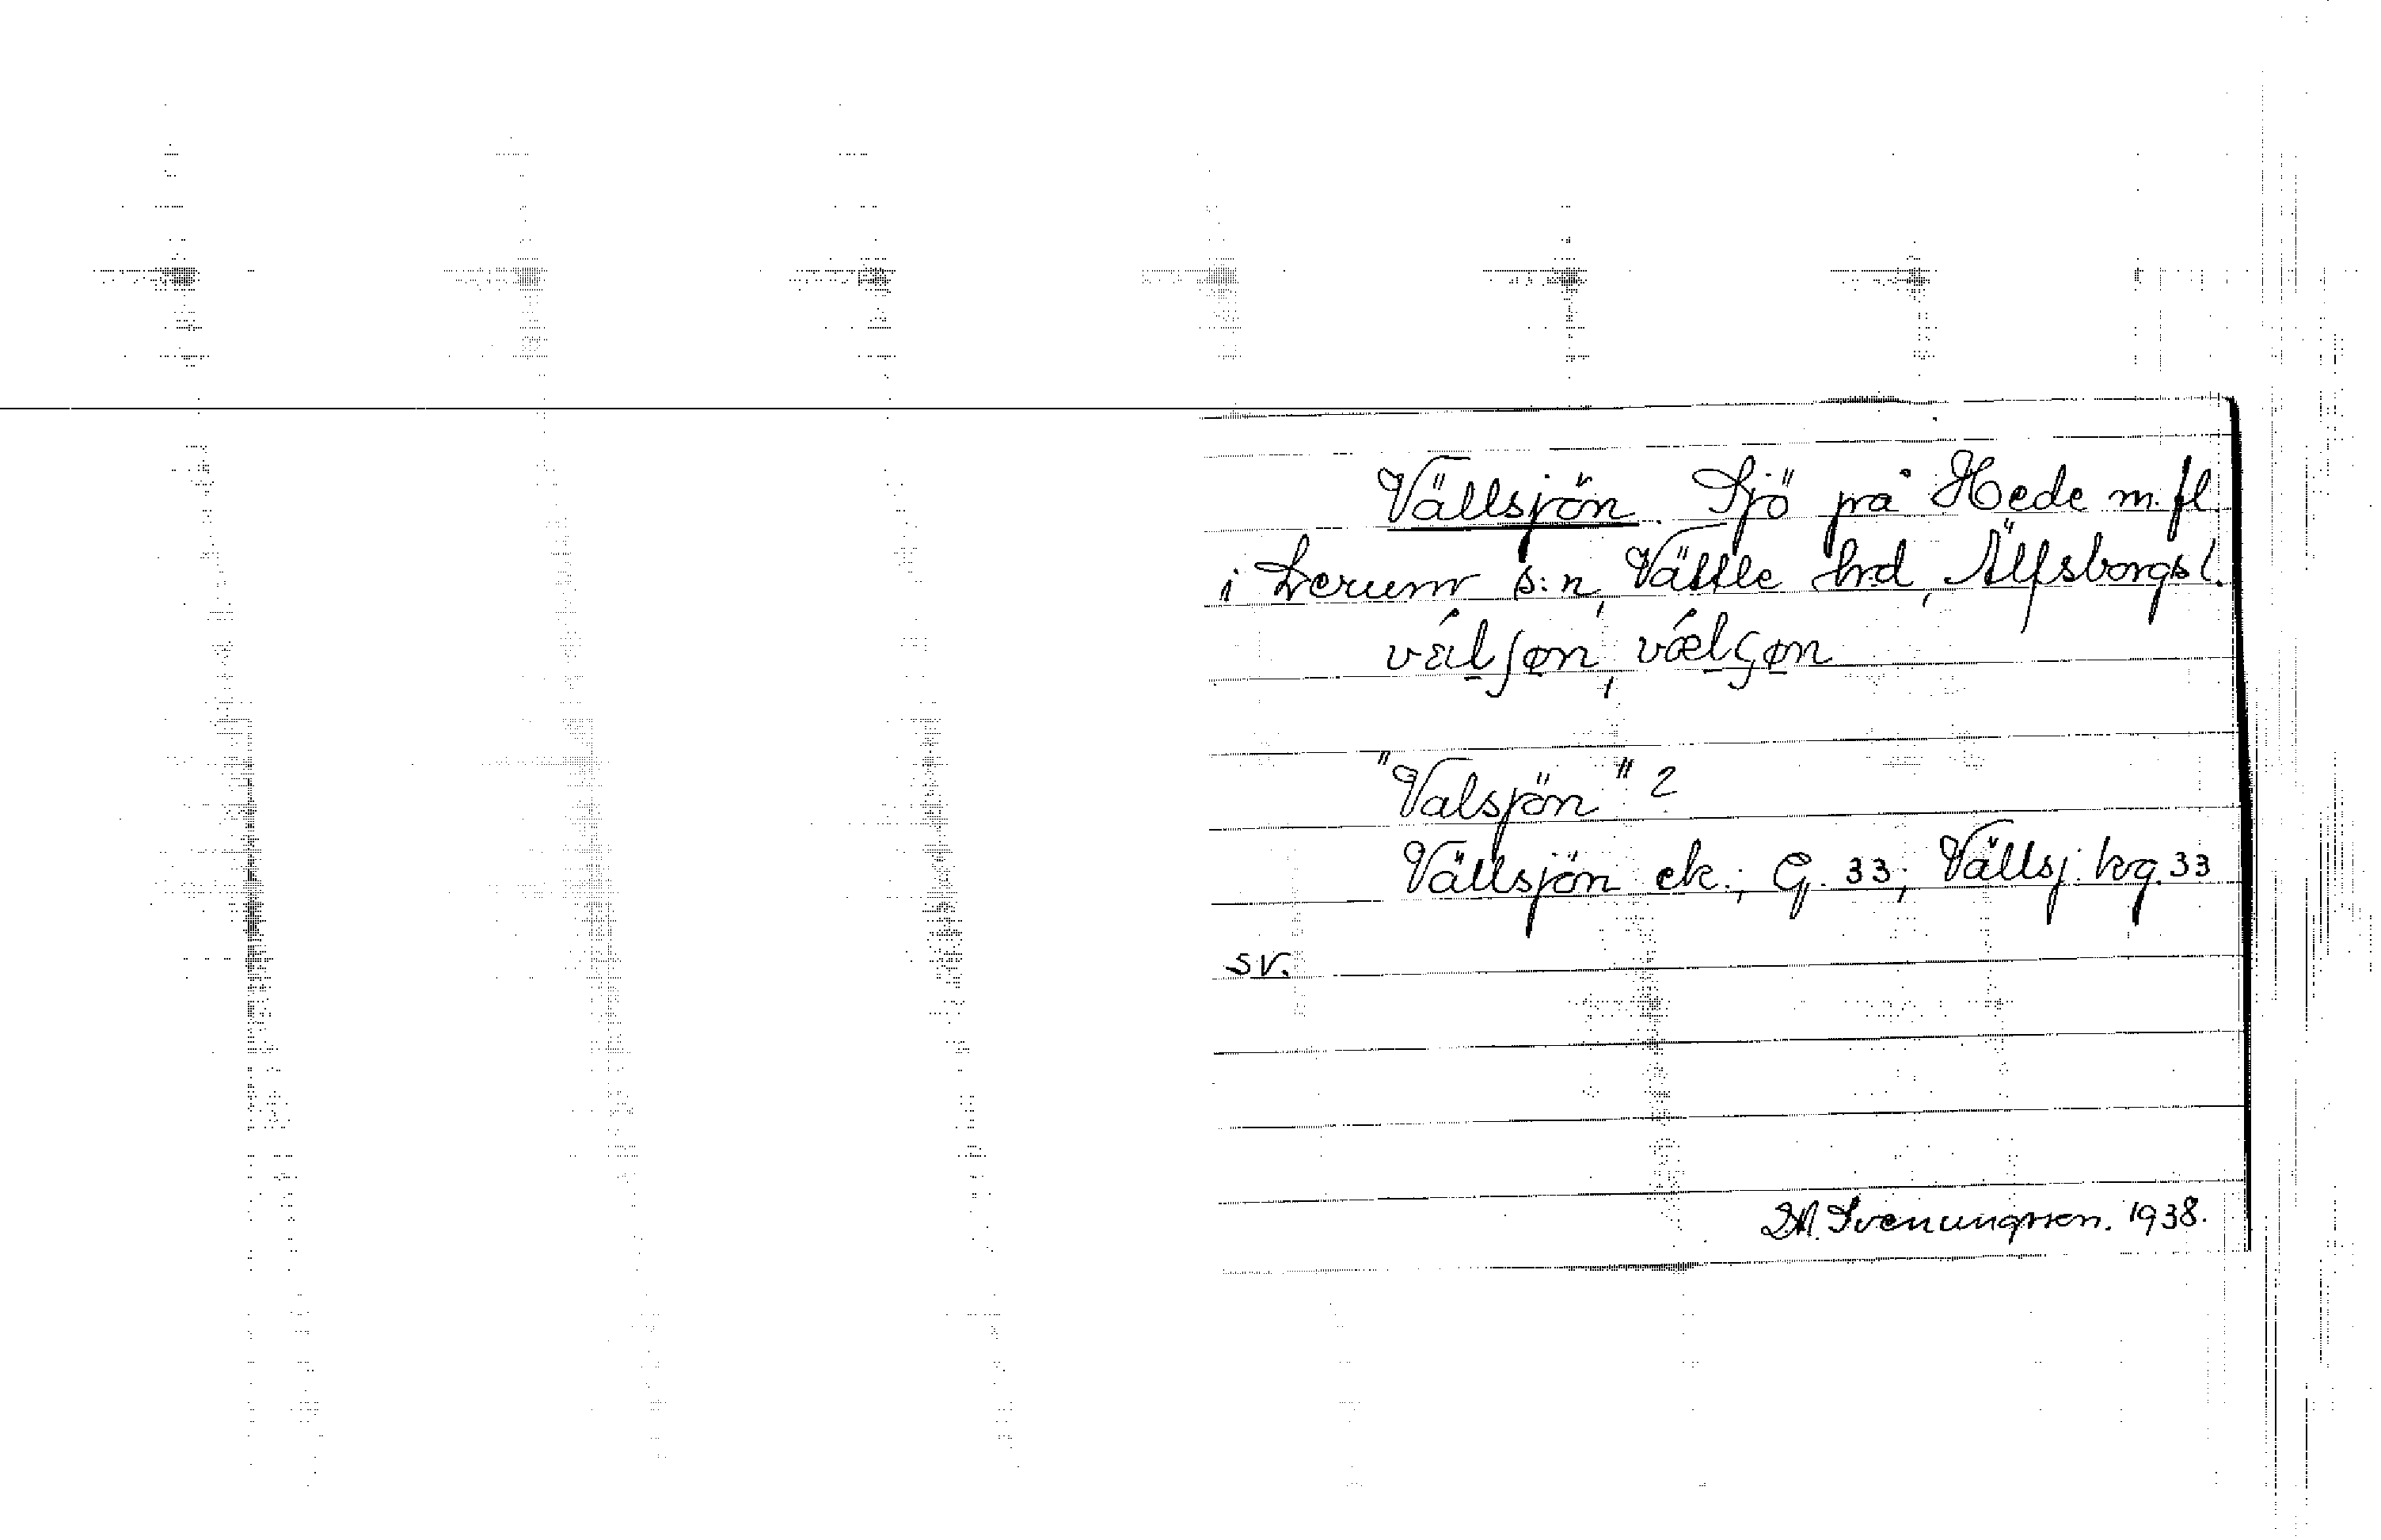 Vällsjön. Sjö på Hede m. fl.
i Lerum s:n, Vättle hrd, Älfsborgs l.
vä́lʃøn, vǽlçøn
"Valsjön" 2
Vällsjön ek.; G. 33; Vällsj. krg. 33
sv.
Svenungsson. 1938.